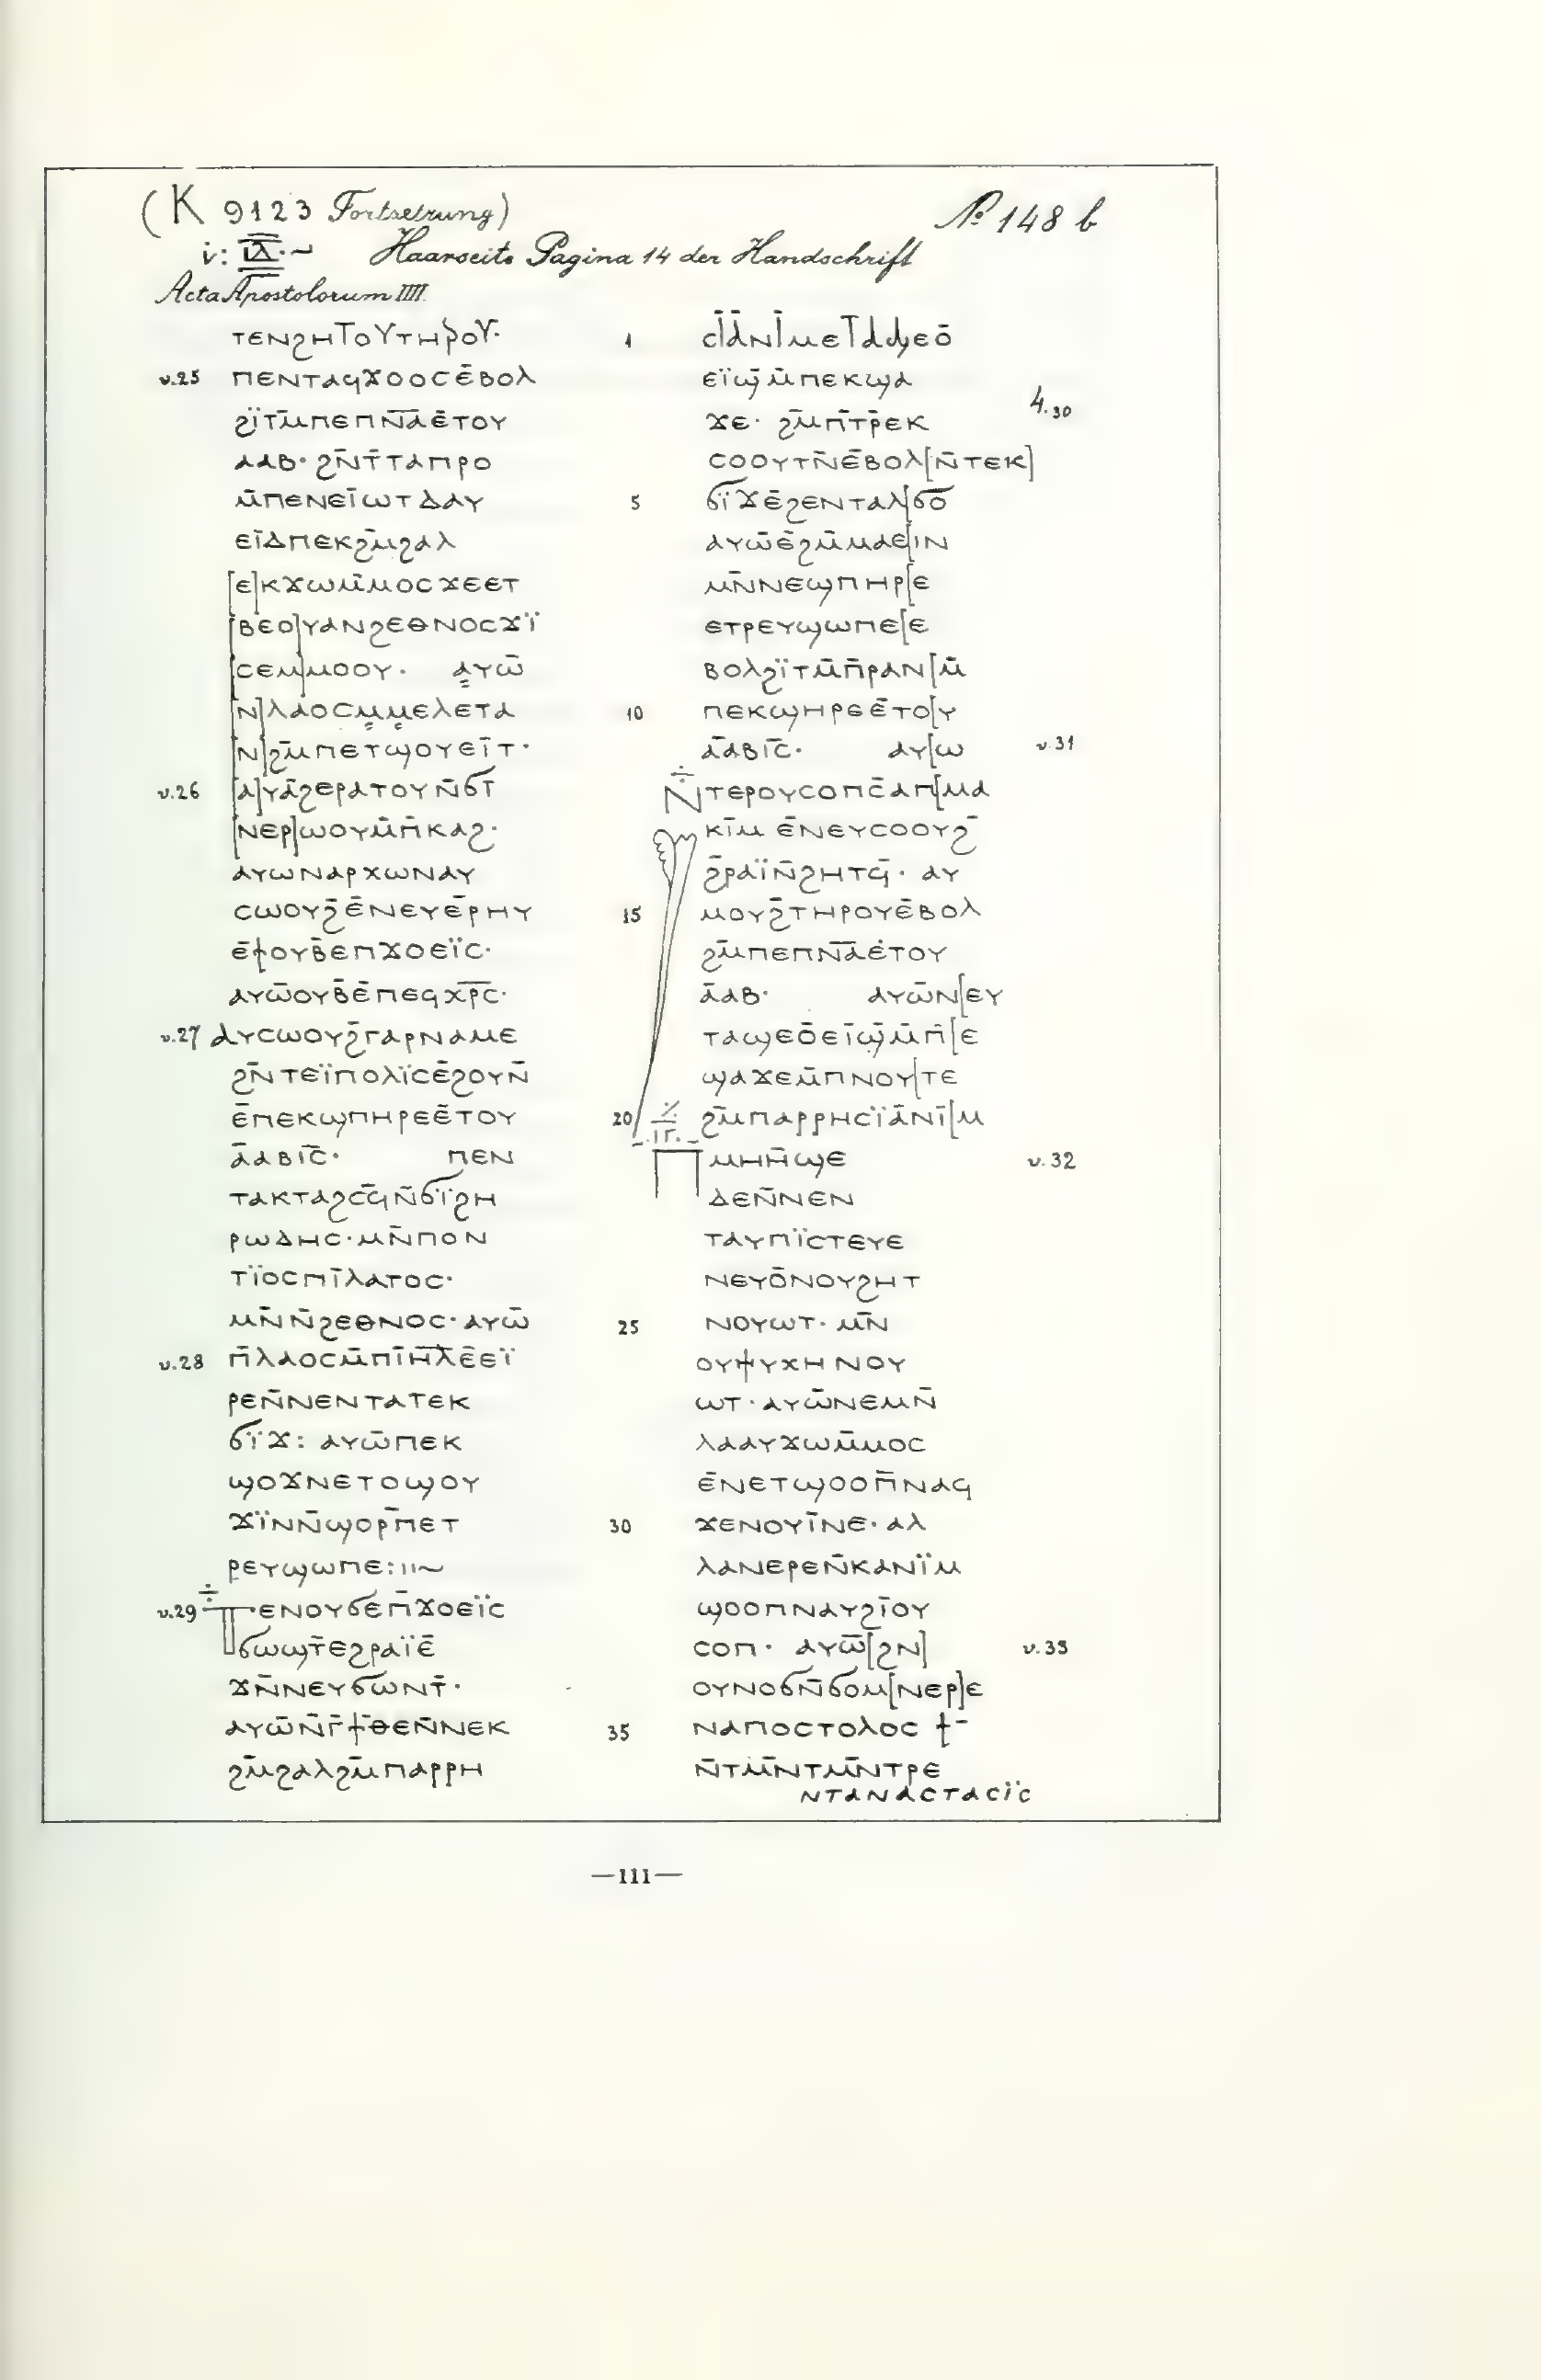 (K 9123 Fortsetzung) № 148 b
v: ⲒⲆ·~ Haarseite Pagina 14 der Handschrift
Acta Apostolorum IIII.
ⲧⲉⲛϩⲏⲧⲟⲩⲧⲏⲣⲟⲩ·
v.25 ⲡⲉⲛⲧⲁϥϫⲟⲟⲥⲉ̄ⲃⲟⲗ
ϩⲓ̈ⲧⲙ̄ⲡⲉⲡⲛ̄ⲁ̄ⲉ̄ⲧⲟⲩ
ⲁⲁⲃ· ϩⲛ̄ⲧ̄ⲧⲁⲡⲣⲟ
ⲙ̄ⲡⲉⲛⲉⲓ̄ⲱⲧⲇⲁⲩ
ⲉⲓ̄ⲇⲡⲉⲕϩⲙ̄ϩⲁⲗ
[ⲉ]ⲕϫⲱⲙ̄ⲙⲟⲥϫⲉⲉⲧ
[ⲃⲉⲟ]ⲩⲁⲛϩⲉⲑⲛⲟⲥϫⲓ̈
[ⲥⲉⲙ]ⲙⲟⲟⲩ· ⲁⲩⲱ̄
[ⲛ]ⲗⲁⲟⲥⲙⲙⲉⲗⲉⲧⲁ
[ⲛ]ϩⲙ̄ⲡⲉⲧϣⲟⲩⲉⲓ̄ⲧ·
v.26 [ⲁ]ⲩⲁ̄ϩⲉⲣⲁⲧⲟⲩⲛ̄ϭⲓ̄
[ⲛⲉⲣ]ⲱⲟⲩⲙ̄ⲡ̄ⲕⲁϩ·
ⲁⲩⲱⲛⲁⲣⲭⲱⲛⲁⲩ
ⲥⲱⲟⲩϩ̄ⲉ̄ⲛⲉⲩⲉ̄ⲣⲏⲩ
ⲉ̄ϯⲟⲩⲃ̄ⲉⲡϫⲟⲉⲓ̈ⲥ·
ⲁⲩⲱ̄ⲟⲩⲃ̄ⲉ̄ⲡⲉϥⲭ̄ⲣ̄ⲥ̄·
v.27 ⲁⲩⲥⲱⲟⲩϩ̄ⲅⲁⲣⲛⲁⲙⲉ
ϩⲛ̄ⲧⲉⲓ̈ⲡⲟⲗⲓ̈ⲥⲉ̄ϩⲟⲩⲛ̄
ⲉ̄ⲡⲉⲕϣⲏⲣⲉⲉ̄ⲧⲟⲩ
ⲁ̄ⲁⲃⲓ̄ⲥ̄· ⲡⲉⲛ
ⲧⲁⲕⲧⲁϩⲥ̄ϥ̄ⲛ̄ϭⲓ̈ϩⲏ
ⲣⲱⲇⲏⲥ·ⲙⲛ̄ⲡⲟⲛ
ⲧⲓ̈ⲟⲥⲡⲓ̄ⲗⲁⲧⲟⲥ·
ⲙⲛ̄ⲛ̄ϩⲉⲑⲛⲟⲥ·ⲁⲩⲱ̄
v.28 ⲡ̄ⲗⲁⲟⲥⲙ̄ⲡⲓ̄ⲏ̄ⲗ̄ⲉ̄ⲉⲓ̈
ⲣⲉⲛ̄ⲛⲉⲛⲧⲁⲧⲉⲕ
ϭⲓ̈ϫ: ⲁⲩⲱ̄ⲡⲉⲕ
ϣⲟϫⲛⲉⲧⲟϣⲟⲩ
ϫⲓ̈ⲛⲛ̄ϣⲟⲣⲡ̄ⲉⲧ
ⲣⲉⲩϣⲱⲡⲉ:ⲓⲓ~
v.29 ⲧⲉⲛⲟⲩϭⲉⲡ̄ϫⲟⲉⲓ̈ⲥ
ϭⲱϣⲧ̄ⲉϩⲣⲁⲓ̈ⲉ̄
ϫⲛ̄ⲛⲉⲩϭⲱⲛⲧ̄·
ⲁⲩⲱ̄ⲛ̄ⲅ̄ϯⲑⲉⲛ̄ⲛⲉⲕ
ϩⲙ̄ϩⲁⲗϩⲙ̄ⲡⲁⲣⲣⲏ
1 ⲥⲓ̄ⲁ̄ⲛⲓ̄ⲙⲉⲧⲁϣⲉⲟ̄
ⲉⲓ̈ϣ̄ⲙ̄ⲡⲉⲕϣⲁ
ϫⲉ· ϩⲙ̄ⲡ̄ⲧⲣ̄ⲉⲕ 4.30
ⲥⲟⲟⲩⲧⲛ̄ⲉ̄ⲃⲟⲗ[ⲛ̄ⲧⲉⲕ]
5 ϭⲓ̈ϫⲉ̄ϩⲉⲛⲧⲁⲗ[ϭⲟ̄
ⲁⲩⲱ̄ⲉ̄ϩⲙ̄ⲙⲁⲉ[ⲓⲛ
ⲙⲛ̄ⲛⲉϣⲡⲏⲣ[ⲉ
ⲉⲧⲣⲉⲩϣⲱⲡⲉ[ⲉ
ⲃⲟⲗϩⲓ̈ⲧⲙ̄ⲡ̄ⲣⲁⲛ[ⲙ̄
10 ⲡⲉⲕϣⲏⲣⲉⲉ̄ⲧⲟ[ⲩ
ⲁ̄ⲁⲃⲓ̄ⲥ̄· ⲁⲩ[ⲱ v.31
ⲛ̄ⲧⲉⲣⲟⲩⲥⲟⲡⲥ̄ⲁⲡ[ⲙⲁ
ⲕⲓ̄ⲙ ⲉ̄ⲛⲉⲩⲥⲟⲟⲩϩ̄
ϩ̄ⲣⲁⲓ̈ⲛ̄ϩⲏⲧϥ̄· ⲁⲩ
15 ⲙⲟⲩϩ̄ⲧⲏⲣⲟⲩⲉ̄ⲃⲟⲗ
ϩⲙ̄ⲡⲉⲡⲛ̄ⲁ̄ⲉ̄ⲧⲟⲩ
ⲁ̄ⲁⲃ· ⲁⲩⲱ̄ⲛ[ⲉⲩ
ⲧⲁϣⲉⲟ̄ⲉⲓ̄ϣ̄ⲙ̄ⲡ̄[ⲉ
ϣⲁϫⲉⲙ̄ⲡⲛⲟⲩ[ⲧⲉ
20 ⲓⲅ. ϩⲙ̄ⲡⲁⲣⲣⲏⲥⲓ̈ⲁ̄ⲛⲓ̄[ⲙ
ⲡⲙⲏⲏ̄ϣⲉ v.32
ⲇⲉⲛ̄ⲛⲉⲛ
ⲧⲁⲩⲡⲓ̈ⲥⲧⲉⲩⲉ
ⲛⲉⲩⲟ̄ⲛⲟⲩϩⲏⲧ
25 ⲛⲟⲩⲱⲧ· ⲙⲛ̄
ⲟⲩⲯⲩⲭⲏⲛⲟⲩ
ⲱⲧ·ⲁⲩⲱ̄ⲛⲉⲙⲛ̄
ⲗⲁⲁⲩϫⲱⲙ̄ⲙⲟⲥ
ⲉ̄ⲛⲉⲧϣⲟⲟⲡ̄ⲛⲁϥ
30 ϫⲉⲛⲟⲩⲓ̄ⲛⲉ·ⲁⲗ
ⲗⲁⲛⲉⲣⲉⲛ̄ⲕⲁⲛⲓ̈ⲙ
ϣⲟⲟⲡⲛⲁⲩϩⲓ̄ⲟⲩ
ⲥⲟⲡ· ⲁⲩⲱ̄[ϩⲛ] v.33
ⲟⲩⲛⲟϭⲛ̄ϭⲟⲙ[ⲛⲉⲣ]ⲉ
35 ⲛⲁⲡⲟⲥⲧⲟⲗⲟⲥ ϯ-
ⲛ̄ⲧⲙ̄ⲛⲧⲙ̄ⲛⲧⲣⲉ
ⲛⲧⲁⲛⲁⲥⲧⲁⲥⲓ̈ⲥ
—111—